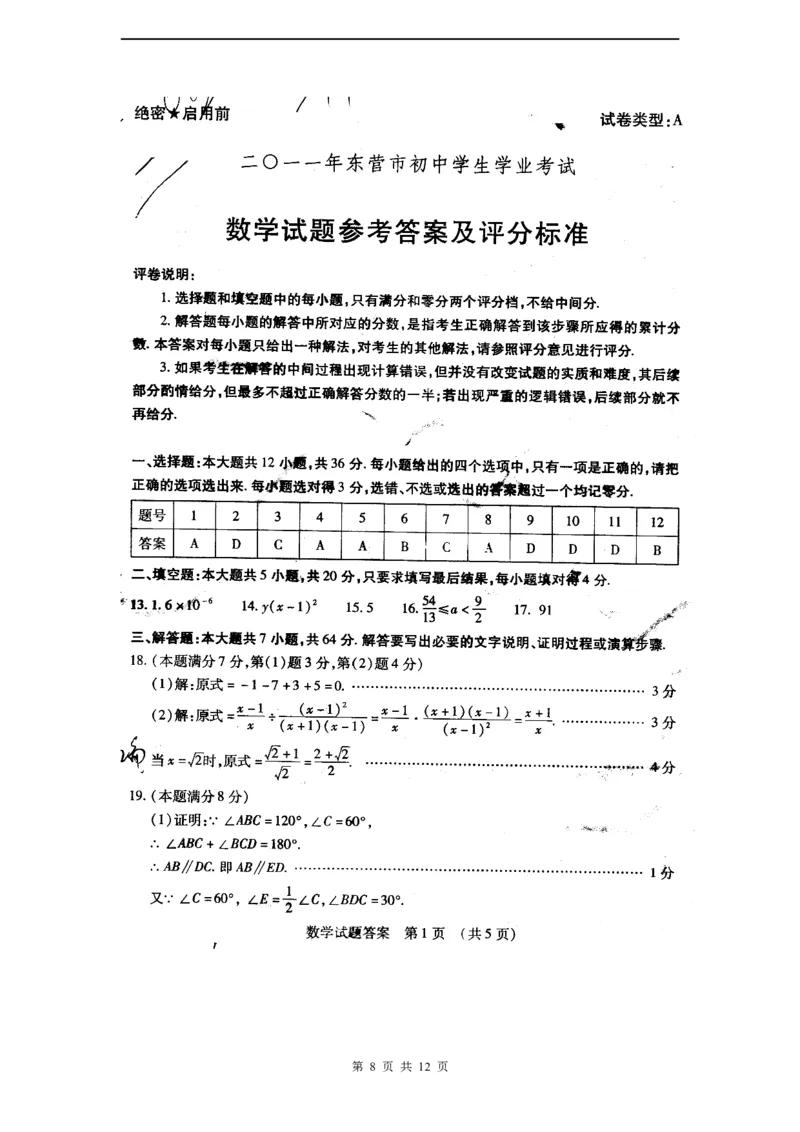 绝密★启用前
试卷类型:A
二〇一一年东营市初中学生学业考试
数学试题参考答案及评分标准
评卷说明:
1. 选择题和填空题中的每小题,只有满分和零分两个评分档,不给中间分.
2. 解答题每小题的解答中所对应的分数,是指考生正确解答到该步骤所应得的累计分
数. 本答案对每小题只给出一种解法,对考生的其他解法,请参照评分意见进行评分.
3. 如果考生在解答的中间过程出现计算错误,但并没有改变试题的实质和难度,其后续
部分酌情给分,但最多不超过正确解答分数的一半;若出现严重的逻辑错误,后续部分就不
再给分.
一、选择题:本大题共 12 小题,共 36 分. 每小题给出的四个选项中,只有一项是正确的,请把
正确的选项选出来. 每小题选对得 3 分,选错、不选或选出的答案超过一个均记零分.
题号 1 2 3 4 5 6 7 8 9 10 11 12
答案 A D C A A B C A D D D B
二、填空题:本大题共 5 小题,共 20 分,只要求填写最后结果,每小题填对得 4 分.
13. 1.6×10⁻⁶ 14. y(x-1)² 15. 5 16. 54/13≤a<9/2 17. 91
三、解答题:本大题共 7 小题,共 64 分. 解答要写出必要的文字说明、证明过程或演算步骤.
18. (本题满分 7 分,第(1)题 3 分,第(2)题 4 分)
(1)解:原式 = -1-7+3+5=0. …………………… 3 分
(2)解:原式 = (x-1)/x ÷ (x-1)²/((x+1)(x-1)) = (x-1)/x · ((x+1)(x-1))/(x-1)² = (x+1)/x. …………… 3 分
当 x=√2时,原式 = (√2+1)/√2 = (2+√2)/2. …………………… 4 分
19. (本题满分 8 分)
(1)证明:∵ ∠ABC=120°,∠C=60°,
∴ ∠ABC+∠BCD=180°.
∴ AB∥DC. 即 AB∥ED. …………………… 1 分
又∵ ∠C=60°, ∠E=1/2∠C,∠BDC=30°.
数学试题答案 第 1 页 (共 5 页)
第 8 页 共 12 页